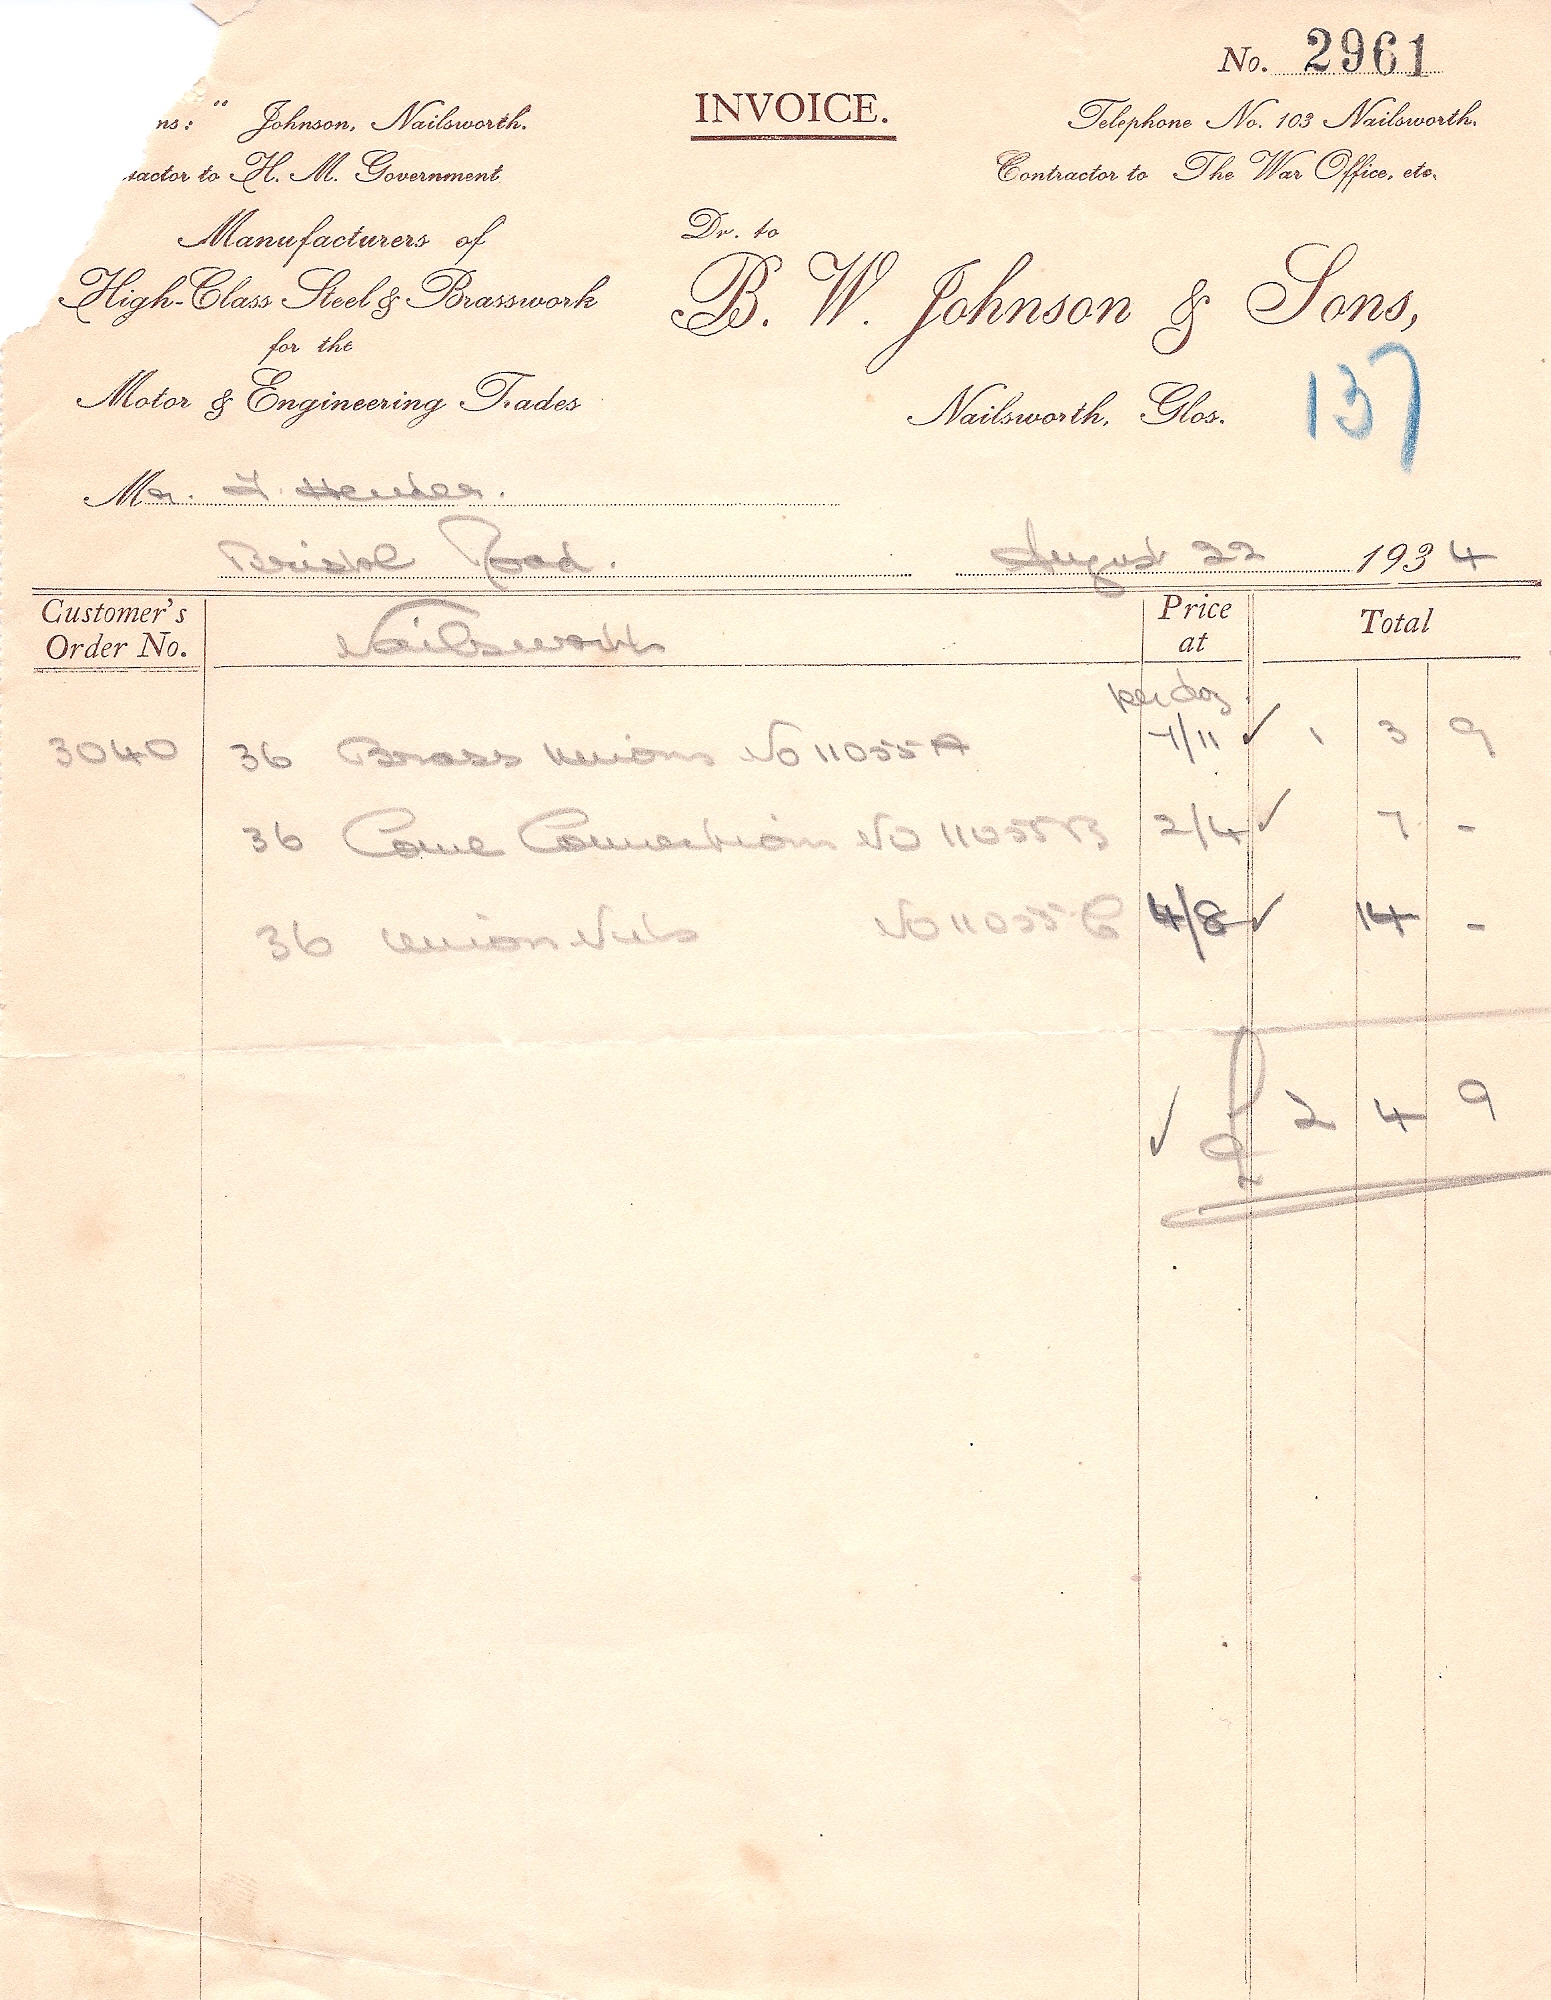 No. 2961
ns:" Johnson, Nailsworth.
INVOICE.
Telephone No. 103 Nailsworth.
actor to H. M. Government
Contractor to The War Office, etc.
Manufacturers of
High-Class Steel & Brasswork
for the
Motor & Engineering Trades
Dr. to
B. W. Johnson & Sons,
Nailsworth, Glos.
137
Mr.
Bristol Road.
August 22 1934
Nailsworth
Customer's
Order No.
Price
at
Total
per doz.
3040 36 Brass Unions No 11055A 7/11 ✓ 1 3 9
36 Cone Connections No 11055B 2/4 ✓ 7 -
36 Union Nuts No 11055C 4/8 ✓ 14 -
✓ £ 2 4 9